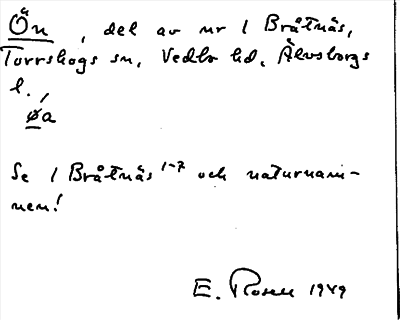 Ön, del av nr 1 Bråtnäs,
Torrskogs sn, Vedbo hd, Älvsborgs
l.,
øa
Se 1 Bråtnäs 1-7 och naturnam-
nen!
E. Rosell 1949